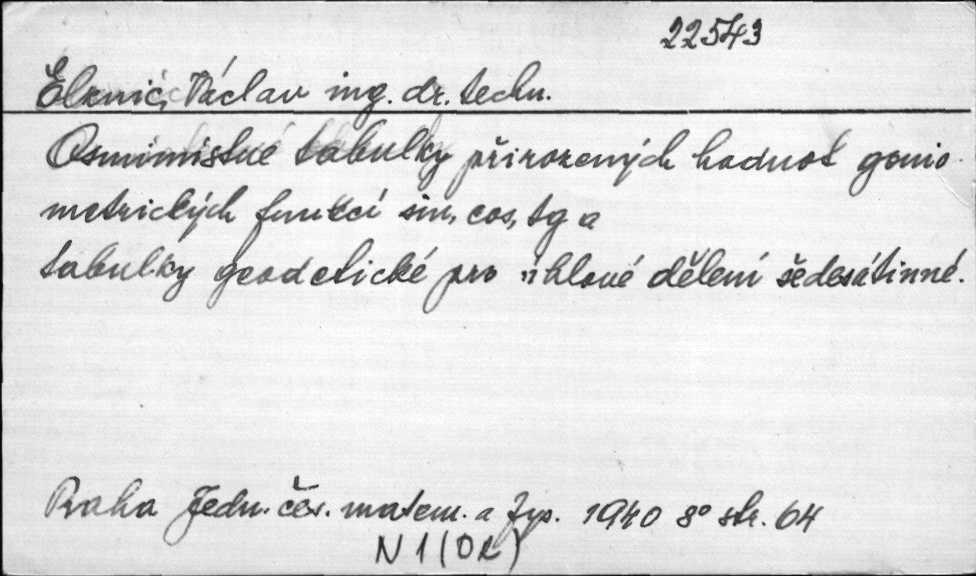 22543
Elznic, Václav ing. dr. techn.
Osmimístné tabulky přirozených hodnot gonio
metrických funkcí sin, cos, tg a
tabulky geodetické pro úhlové dělení šedesátinné.
Praha Jedn. čes. matem. a fys. 1940 8° str. 64
N 1 (OK)